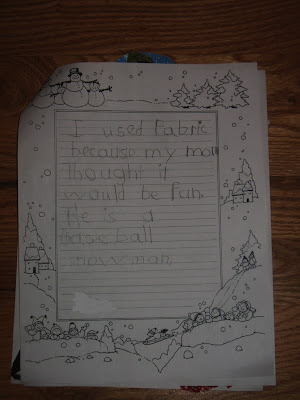 I used fabric
because my mom
thought it
would be fun.
He is a
baseball
snowman.